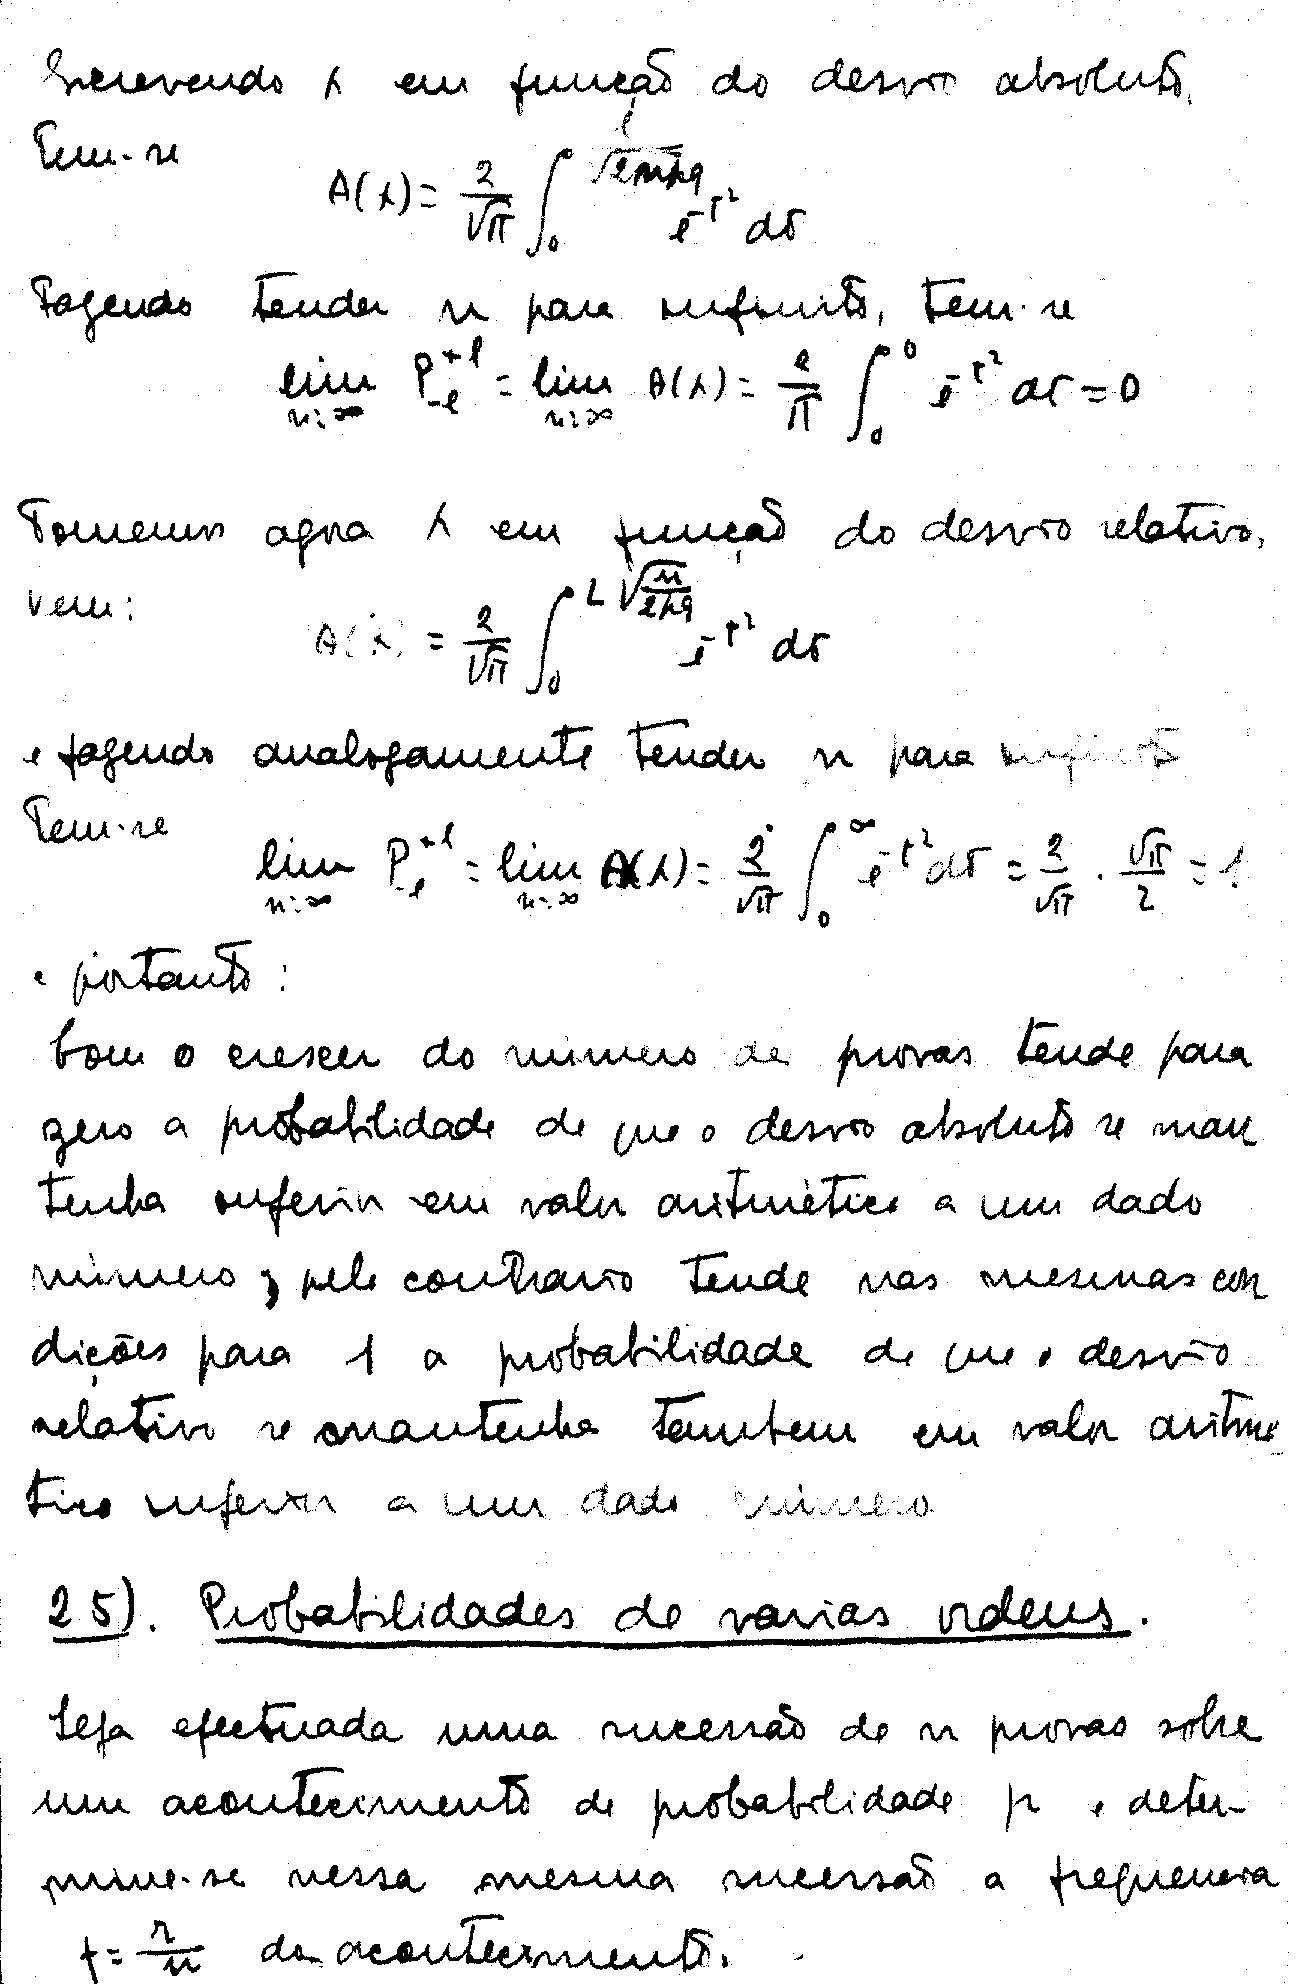 Escrevendo λ em função do desvio absoluto,
Tem-se
A(λ) = 2/√π ∫₀^{l/√2npq} e^{-t²} dt
Fazendo tender n para infinito, tem-se
lim_{n=∞} P_{-l}^{+l} = lim_{n=∞} A(λ) = 2/π ∫₀⁰ e^{-t²} dt = 0
Tomemos agora λ em função do desvio relativo,
vem:
A(λ) = 2/√π ∫₀^{L√(n/2pq)} e^{-t²} dt
e fazendo analogamente tender n para infinito
Tem-se
lim_{n=∞} P_{-l}^{+l} = lim_{n=∞} A(λ) = 2/√π ∫₀^∞ e^{-t²} dt = 2/√π · √π/2 = 1
e portanto:
Com o crescer do número de provas tende para
zero a probabilidade de que o desvio absoluto se man
tenha inferior em valor aritmético a um dado
número; pelo contrario tende nas mesmas con
dições para 1 a probabilidade de que o desvio
relativo se mantenha tambem em valor aritmé-
tico inferior a um dado número
25). Probabilidades de varias ordens.
Seja efectuada uma sucessão de n provas sobre
um acontecimento de probabilidade p e deter-
mine-se nessa mesma sucessão a frequencia
f = r/n do acontecimento.